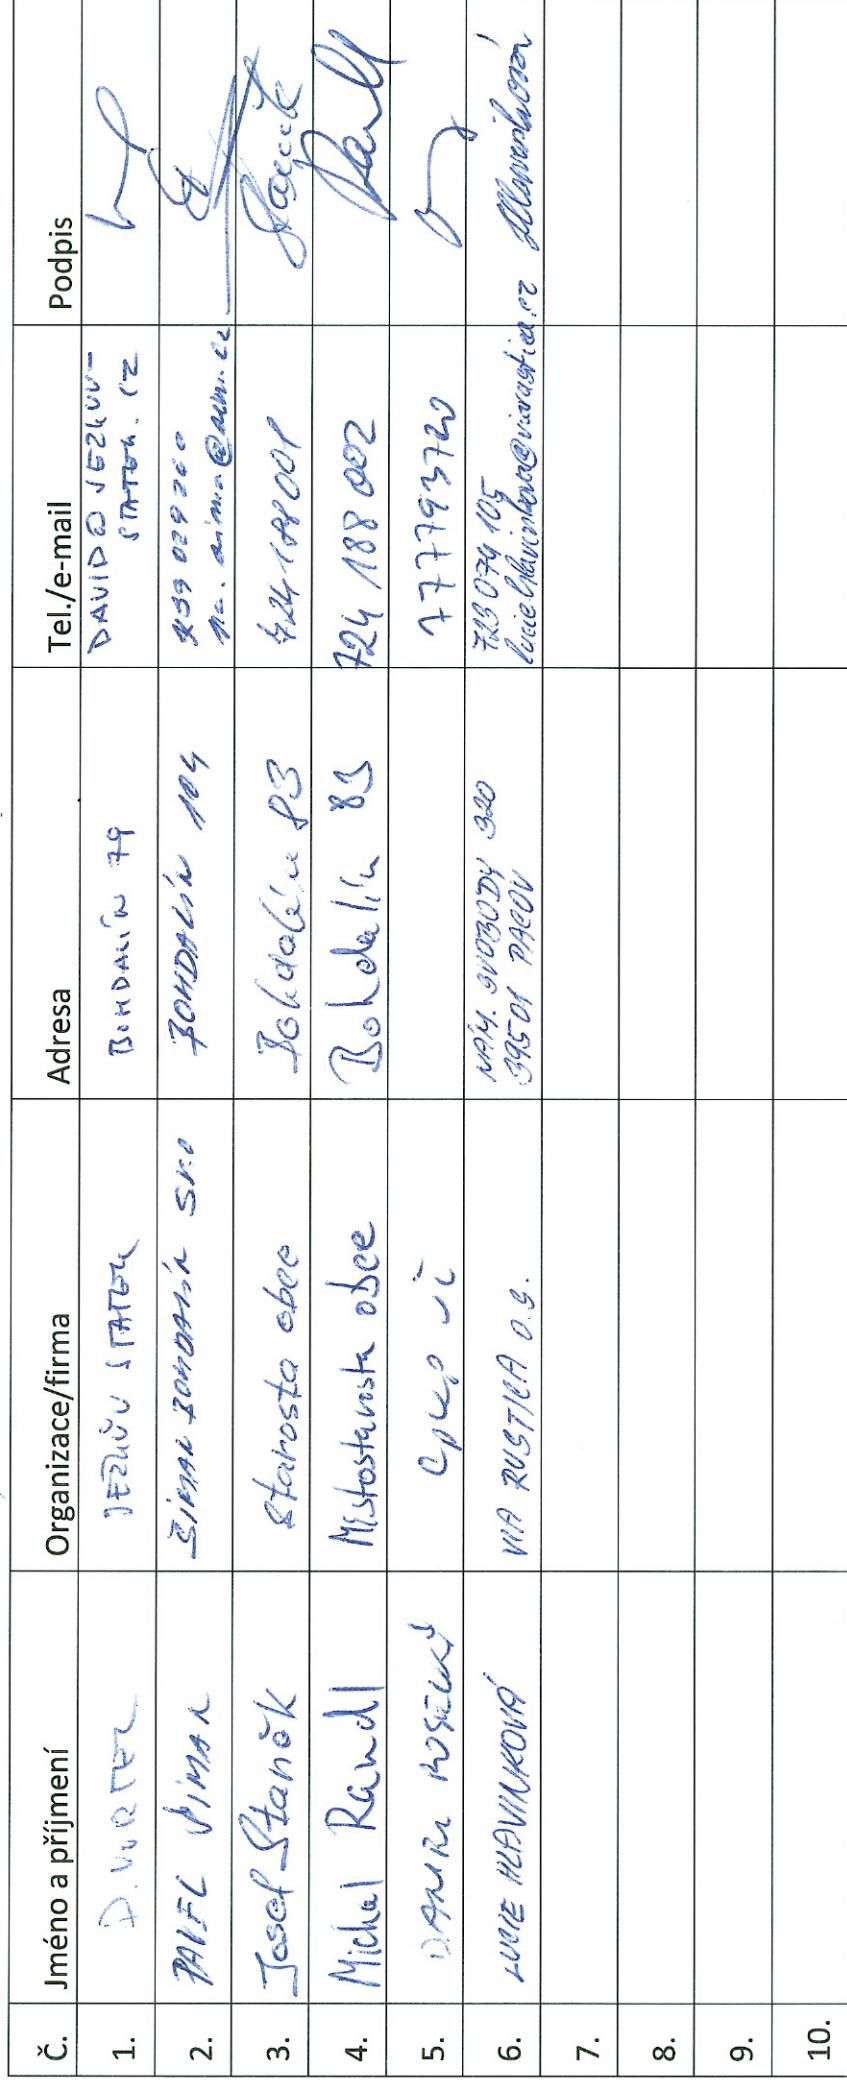 Č. Jméno a příjmení Organizace/firma Adresa Tel./e-mail Podpis
1. D. JEZKŮV STATEK BOHDALÍN 79 DAVID@JEZKUV-
STATEK.CZ
2. PAVEL ŠIMAN ŠIMAN BOHDALÍN SRO BOHDALÍN 104
3. Josef Staněk Starosta obce Bohdalín 83 724188001
4. Michal Randl Místostarosta obce Bohdalín 83 724 188 002
5. 777793720
6. LUCIE HLAVINKOVÁ VIA RUSTICA O.S. NÁM. SVOBODY 320 723 074 105
39501 PACOV lucie.hlavinkova@viarustica.cz Hlavinková
7.
8.
9.
10.